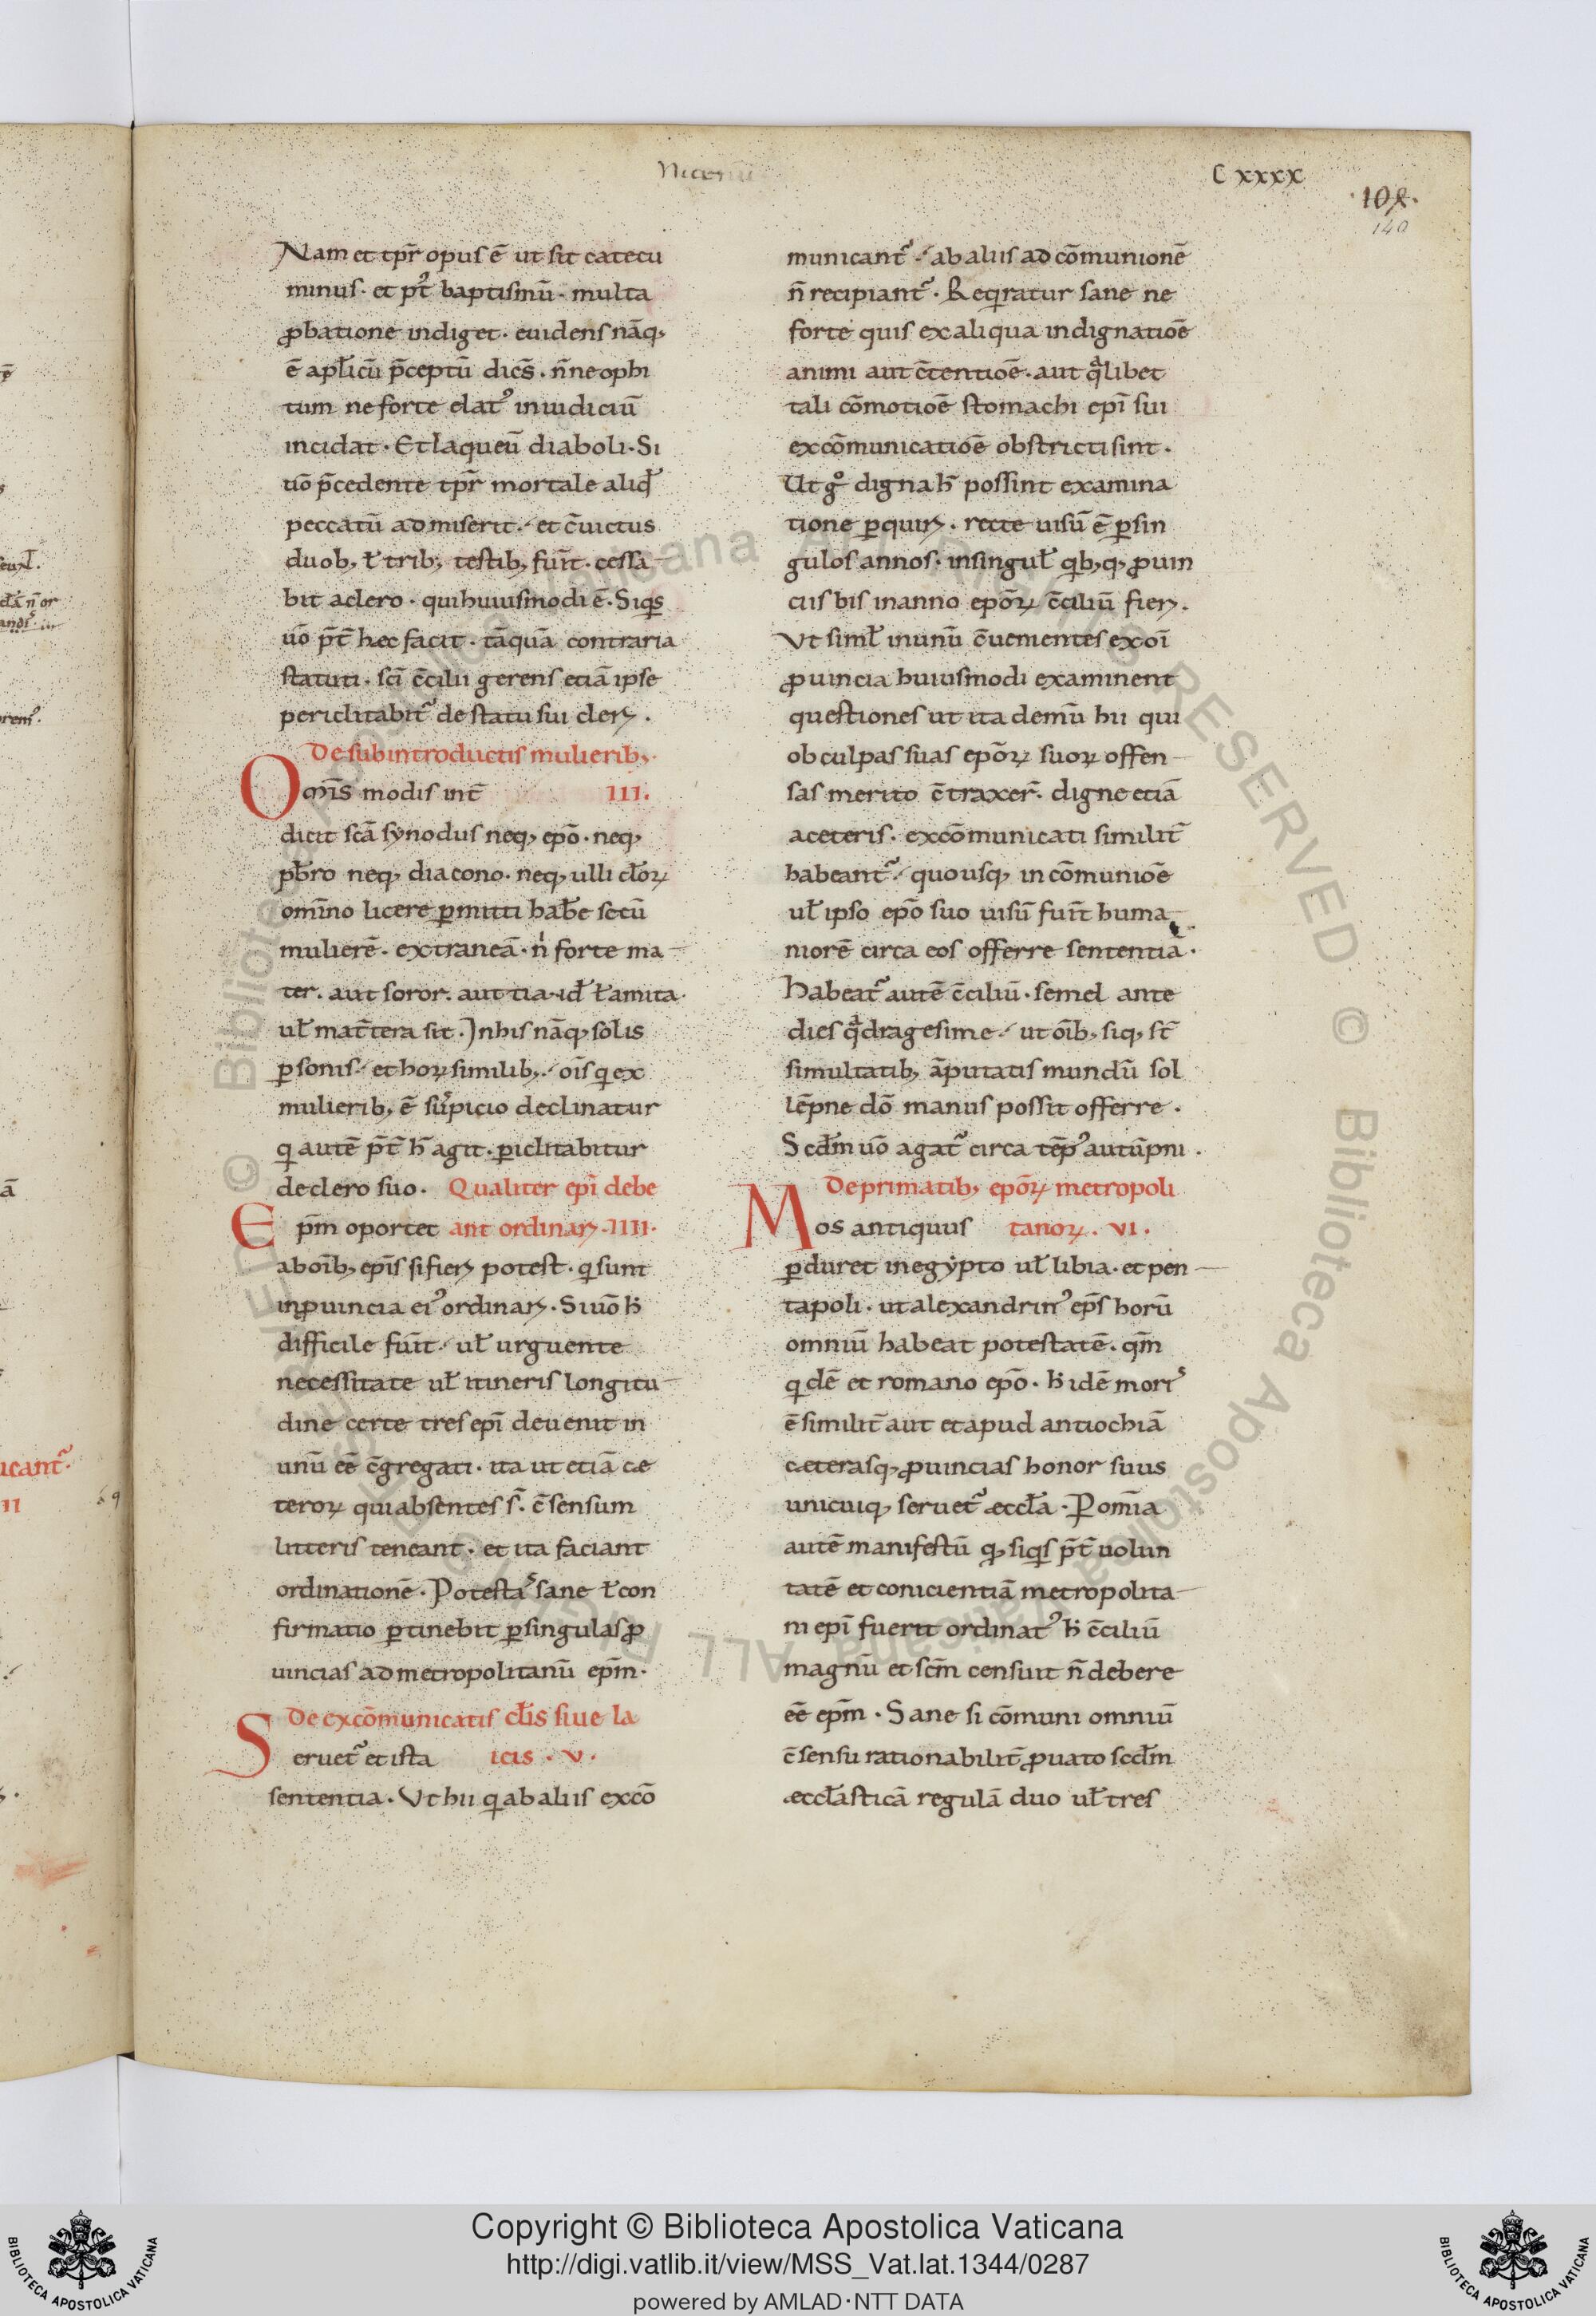 Nicenū
C xxxx
·108·
140
Nam et tp̄r opus ē ut sit catecu
minus· et p᷒t baptismū· multa
ꝓbatione indiget· euidens nāq;
ē apl̄icū p̄ceptū dicēs· n̄ neophi
tum ne forte elat᷒ in iudiciū
incidat· Et laqueū diaboli· Si
uō p̄cedente tp̄r mortale aliqđ
peccatū admiserit· et c̄uictus
duob; ł trib; testib; fuīt· cessa
bit a clero· qui huiusmodi ē· Siqis
uō p̄t hec facit· tāquā contraria
statuti· sc̄i c̄cilii gerens etiā ipse
periclitabit᷒ de statu sui cleri·
De subintroductis mulierib;·
Om̄is modis int̄ III.
dicit scā synodus neq; ep̄o· neq;
pƀro neq; diacono· neq; ulli cl̄oꝝ
omīno licere ꝑmitti habe secū
mulierē· extraneā· ni forte ma
ter· aut soror· aut tia· id̄ ł amita·
ul̄ mat̄tera sit· In his nāq; solis
ꝑsonis· et hoꝝ similib;· oīs q ex
mulierib; ē suspicio declinatur
q autē p̄t h̄ agit· ꝑiclitabitur
de clero suo· Qualiter epī debe
Ep̄m oportet ant ordinari· IIII·
ab oīb; ep̄is si fieri potest· q sunt
in ꝓuincia ei᷒ ordinari· Si uō ħ
difficile fuīt· ul̄ urguente
necessitate ul̄ itineris longitu
dine certe tres epī deuenit in
unū eē c̄gregati· ita ut etiā cæ
teroꝝ qui absentes s̄· c̄sensum
litteris teneant· et ita faciant
ordinationē· Potestas sane ł con
firmatio ꝑtinebit ꝑ singulas ꝓ
uincias ad metropolitanū ep̄m·
De excōmunicatis cl̄is siue la
Seruet᷒ et ista icis · v ·
sententia· Vt hii q ab aliis excō
municant᷒· ab aliis ad cōmunionē
n̄ recipiant᷒· Reqiratur sane ne
forte quis ex aliqua indignatiōe
animi aut c̄tentiōe· aut qalibet
tali cōmotiōe stomachi epī sui
excōmunicatiōe obstricti sint·
Ut go digna h̄ possint examina
tione ꝑquiri· recte uisū ē ꝑ sin
gulos annos· in singul̄ qib;q; ꝓuin
ciis bis in anno ep̄oꝝ c̄ciliū fieri·
Vt siml̄ in unū c̄uenientes ex oī
ꝓuincia huiusmodi examinent
questiones ut ita demū hii qui
ob culpas suas ep̄oꝝ suoꝝ offen
sas merito c̄traxer̄· digne etiā
a ceteris· excōmunicati similit̄
habeant᷒· quo usq; in cōmuniōe
ul̄ ipso ep̄o suo uisū fuīt huma
niorē circa eos offerre sententiā·
Habeat᷒ autē c̄ciliū· semel ante
dies qadragesime· ut oīb; siq; st̄
simultatib; āputatis mundū sol
lēpne dō manus possit offerre·
Scd̄m uō agat᷒ circa tēp᷒ autūpni·
De primatib; ep̄oꝝ metropoli
Mos antiquus tanoꝝ· VI·
ꝑduret in egypto ul̄ libia· et pen
tapoli· ut alexandrin᷒ ep̄s horū
omniū habeat potestatē· qm̄
qidē et romano ep̄o· ħ idē moris
ē similit̄ aut et apud antiochiā
cæterasq; ꝓuincias honor suus
unicuiq; seruet᷒ æccl̄a· Pomīa
autē manifestū q; siqis p̄t uolun
tatē et conicientiā metropolita
ni epī fuerit ordinat᷒ ħ c̄ciliū
magnū et sc̄m censuit n̄ debere
eē ep̄m· Sane si cōmuni omniū
c̄sensu rationabilit̄ ꝓuato scd̄m
æccl̄asticā regulā duo ul̄ tres
Copyright © Biblioteca Apostolica Vaticana
http://digi.vatlib.it/view/MSS_Vat.lat.1344/0287
powered by AMLAD·NTT DATA